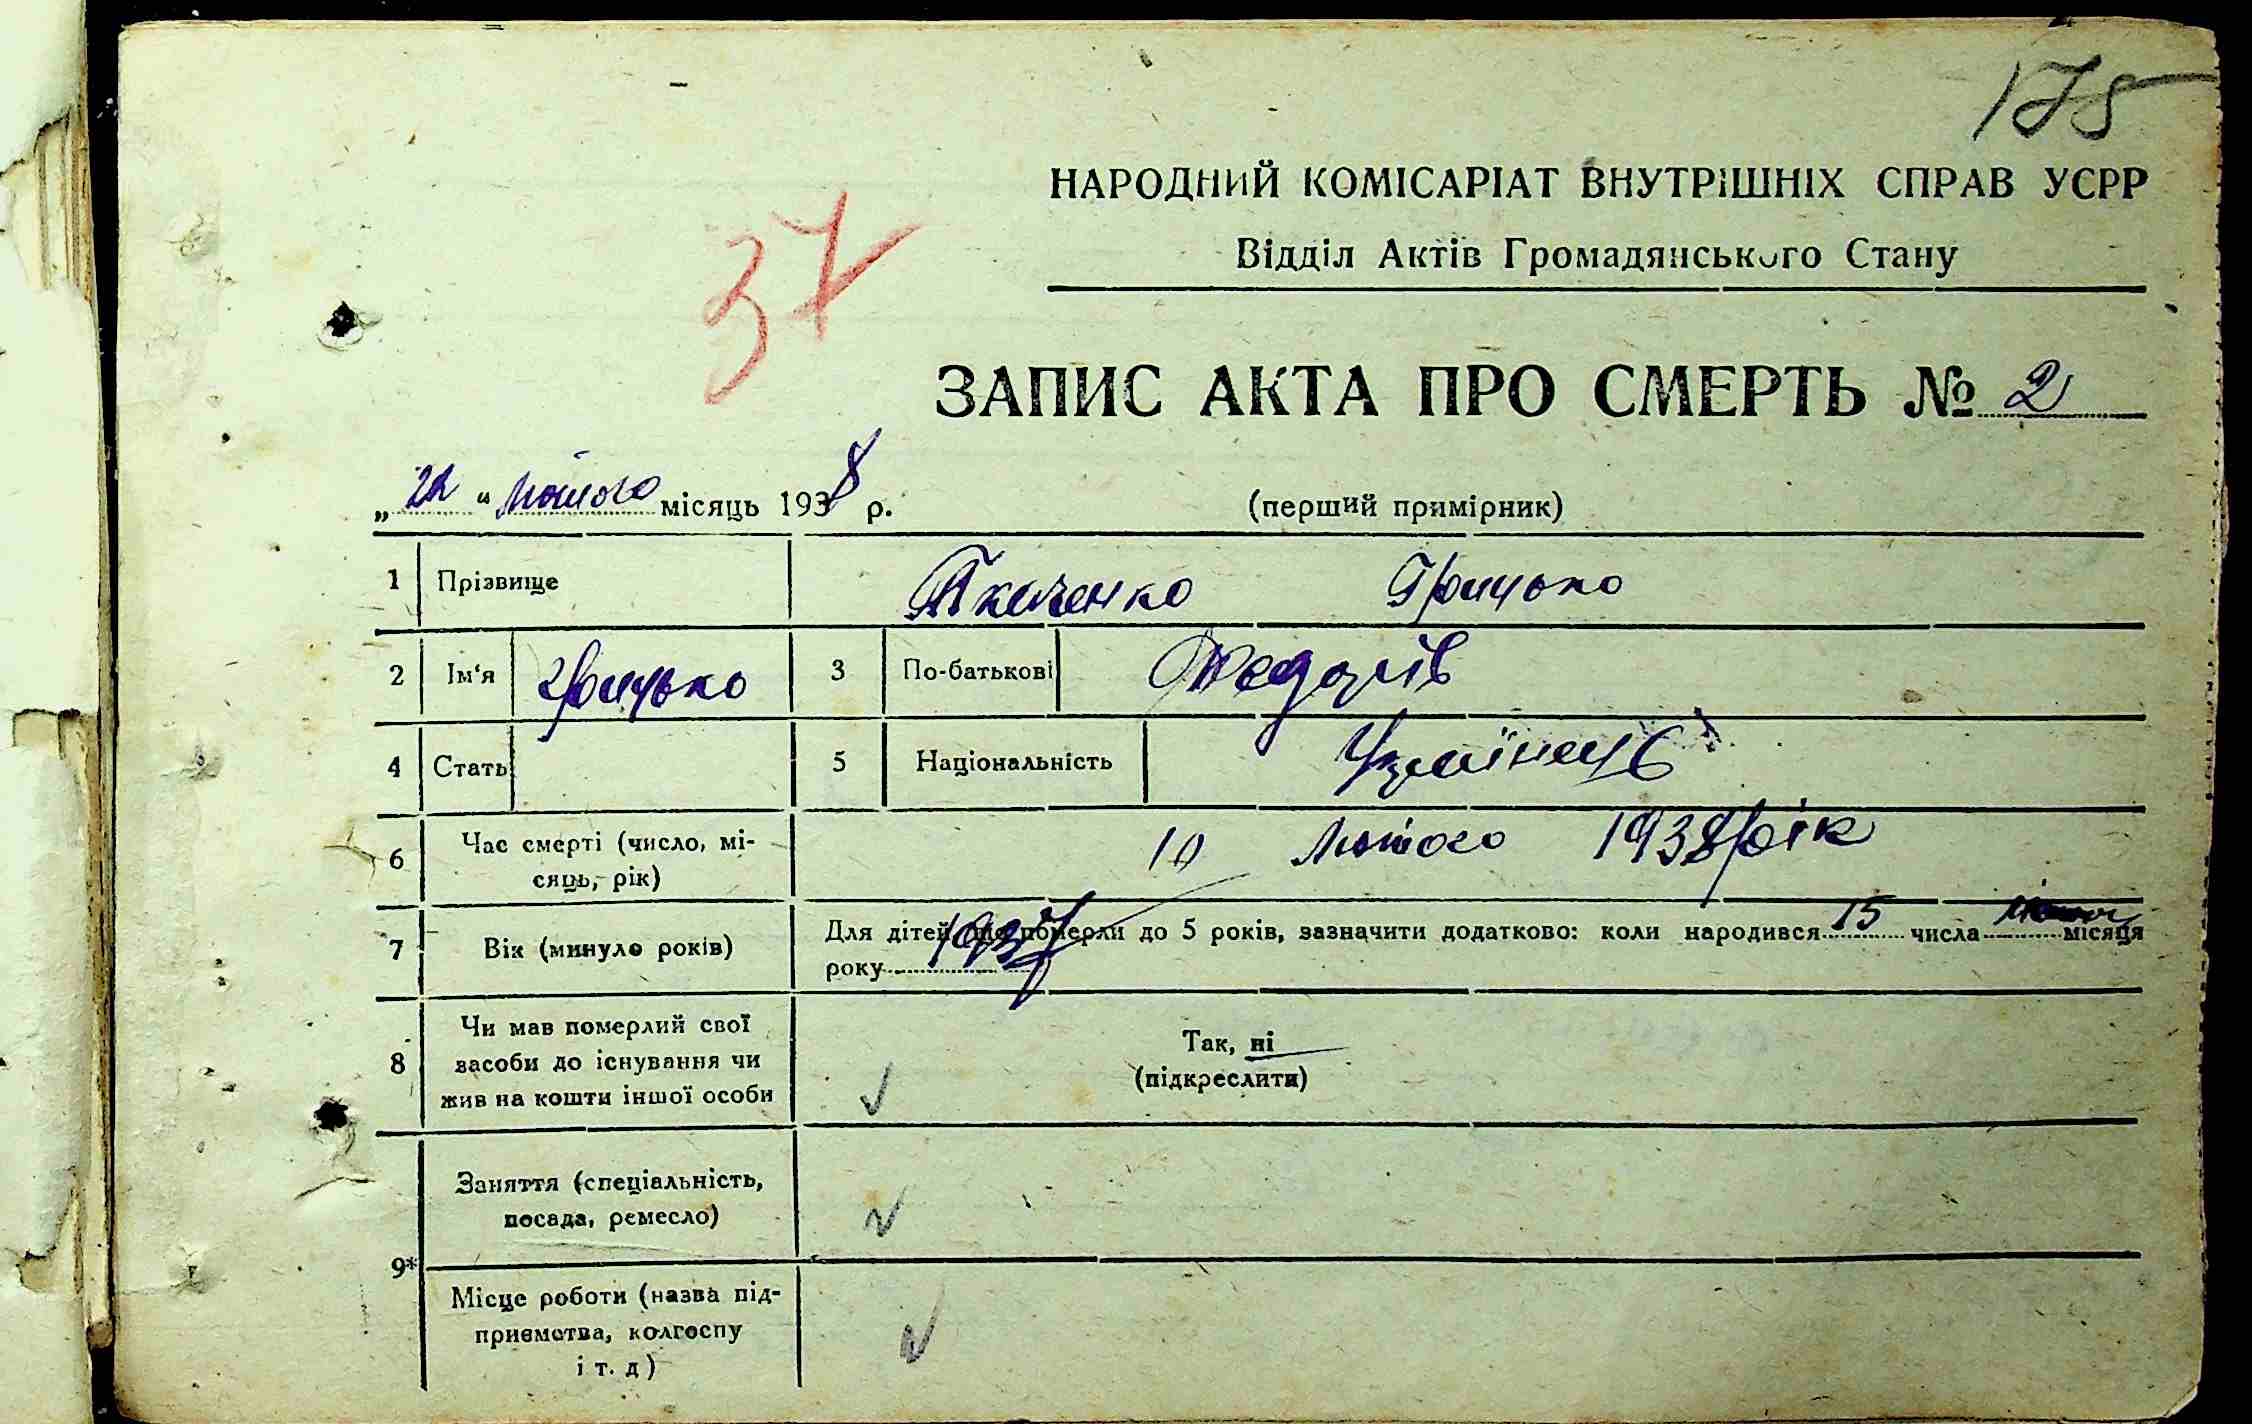 178
НАРОДНИЙ КОМІСАРІАТ ВНУТРІШНІХ СПРАВ УСРР
Відділ Актів Громадянського Стану
37
ЗАПИС АКТА ПРО СМЕРТЬ № 2
„22“ лютого місяць 1938 р. (перший примірник)
1 Прізвище Ткаченко Грицько
2 Ім'я Грицько 3 По-батькові Федорів
4 Стать 5 Національність Українець
6 Час смерті (число, мі-
сяць, рік) 10 Лютого 1938 рік
7 Вік (минуло років) Для дітей, що померли до 5 років, зазначити додатково: коли народився 15 числа місяця
року 1937
8 Чи мав померлий свої
засоби до існування чи
жив на кошти іншої особи
Так, ні
(підкреслити)
9* Заняття (спеціальність,
посада, ремесло)
Місце роботи (назва під-
приємства, колгоспу
і т. д)